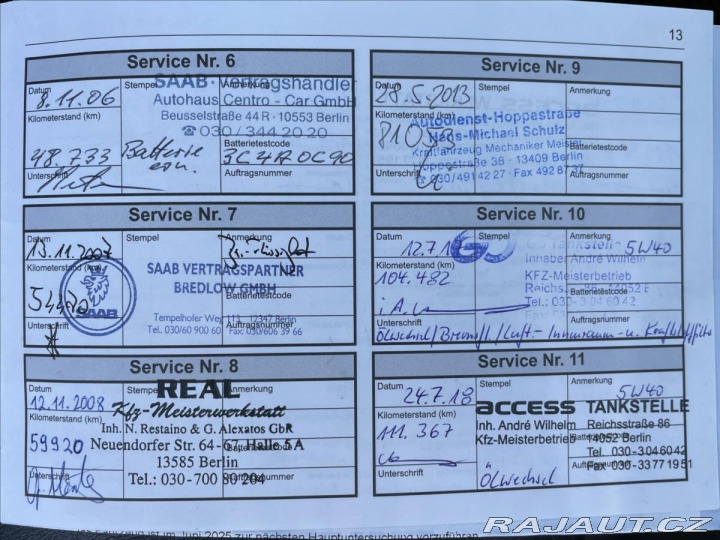 13
Service Nr. 6
Datum
8.11.06
Stempel
Anmerkung
SAAB - Vertragshändler
Autohaus Centro - Car GmbH
Beusselstraße 44 R · 10553 Berlin
☎ 030 / 344 20 20
Kilometerstand (km)
48.733
Batterie
Batterietestcode
3C4R0C90
Unterschrift
Auftragsnummer
Service Nr. 7
Datum
13.11.2007
Stempel
Anmerkung
Kilometerstand (km)
SAAB VERTRAGSPARTNER
BREDLOW GMBH
SAAB
Batterietestcode
Tempelhofer Weg 113, 12347 Berlin
Tel. 030/60 900 60 Fax: 030/606 39 66
Unterschrift
Auftragsnummer
Service Nr. 8
Datum
12.11.2008
Stempel
Anmerkung
REAL
Kfz-Meisterwerkstatt
Inh. N. Restaino & G. Alexatos GbR
Neuendorfer Str. 64-67, Halle 5A
13585 Berlin
Tel.: 030-700 80 204
Kilometerstand (km)
59920
Batterietestcode
Unterschrift
Auftragsnummer
Service Nr. 9
Datum
28.5.2013
Stempel
Anmerkung
Kilometerstand (km)
Autodienst-Hoppestraße
Hans-Michael Schulz
Kraftfahrzeug Mechaniker Meister
Hoppestraße 38 · 13409 Berlin
☎ 030/491 42 27 · Fax 492 87 37
Unterschrift
Auftragsnummer
Service Nr. 10
Datum
Stempel
Anmerkung
5W40
Tankstelle
Inhaber André Wilhelm
KFZ-Meisterbetrieb
Tel.: 030-3 04 60 42
Kilometerstand (km)
104.482
Batterietestcode
i.A.
Unterschrift
Auftragsnummer
Ölwechsel/Bremsfl./Luft.-Innenraum- u. Kraftstofffilter
Service Nr. 11
Datum
24.7.18
Stempel
Anmerkung
5W40
access TANKSTELLE
Inh. André Wilhelm Reichsstraße 86
Kfz-Meisterbetrieb 14052 Berlin
Tel.: 030-304 60 42
Fax 030-33 77 19 51
Kilometerstand (km)
111.367
Batterietestcode
Unterschrift
Ölwechsel
Auftragsnummer
ist im Juni 2025 zur nächsten Hauptuntersuchung vorzuführen
RAJAUT.CZ